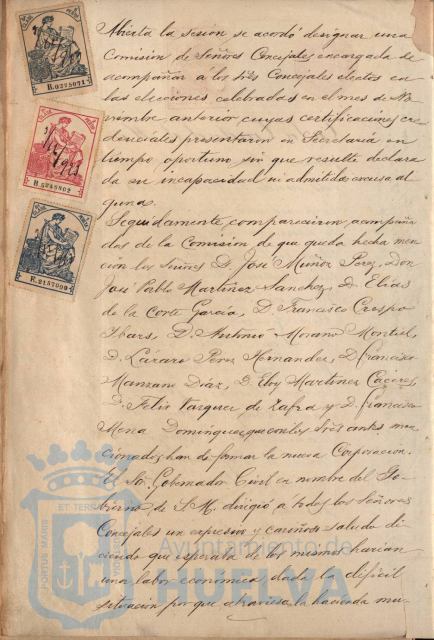 Abierta la sesión se acordó designar una
Comisión de Señores Concejales encargada de
acompañar a los Sres Concejales electos en
las elecciones celebradas en el mes de No
viembre anterior cuyas certificaciones cre
denciales presentaron en Secretaría en
tiempo oportuno, sin que resulte declara
da su incapacidad ni admitida excusa al
guna.
Seguidamente, comparecieron acompaña
dos de la Comisión de que queda hecha men
ción los Señores D. José Muñoz Pérez, Don
José Pablo Martínez Sánchez, D. Elías
de la Corte García, D. Francisco Crespo
Ibars, D. Antonio Morano Montiel,
D. Lázaro Pérez Hernández, D. Francisco
Manzano Díaz, D. Eloy Martínez Cáceres,
D. Félix Vázquez de Zafra y D. Francisco
Mena Domínguez, que con los Sres antes men
cionados han de formar la nueva Corporación.
El Sr. Gobernador Civil en nombre del Go-
bierno de S. M. dirigió a todos los Señores
Concejales un expresivo y cariñoso saludo di
ciendo que esperaba de los mismos harían
una labor económica dada la difícil
situación por que atraviesa la hacienda mu-
B.0275071
B.5248802
E.2157090
PORTUS MARIS
ET TERRÆ
Ayuntamiento de
HUELVA